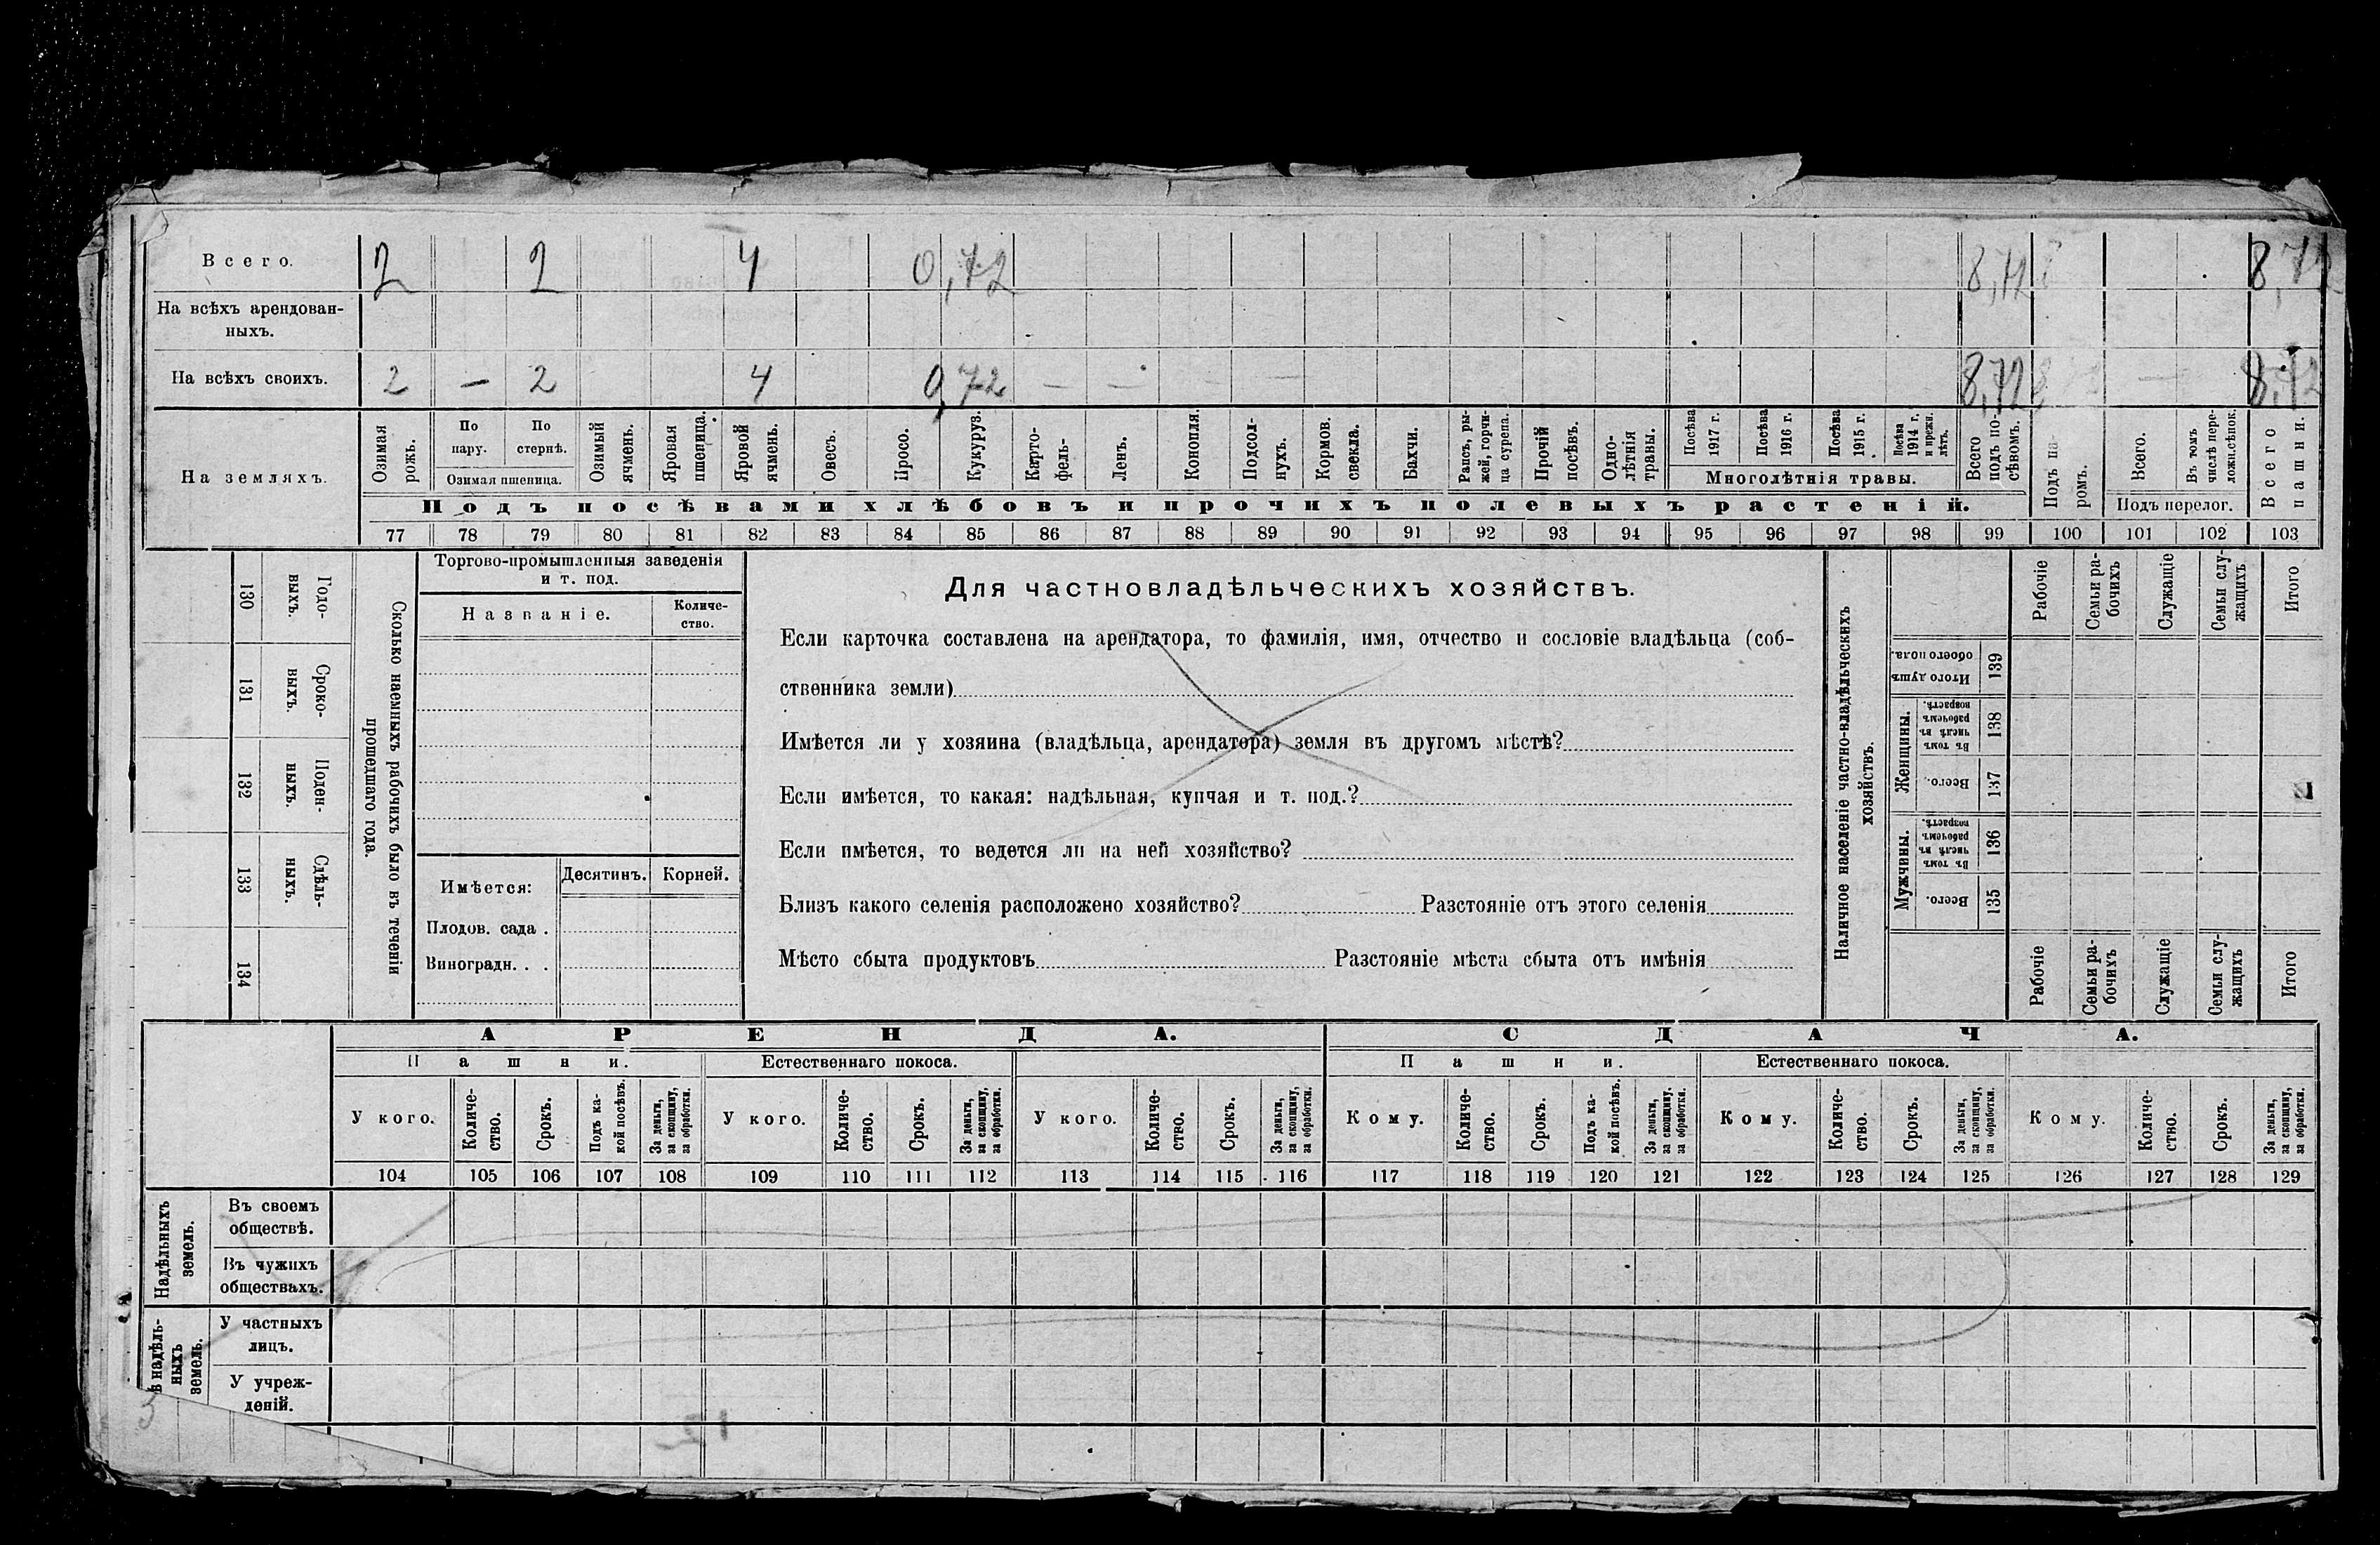 Всего. 2 2 4 0,72 8,72 8,72
На всѣхъ арендован-
ныхъ.
На всѣхъ своихъ. 2 — 2 4 0,72 — — — — 8,72 — 8,72
На земляхъ.
Озимая рожь.
По пару.
По стернѣ.
Озимая пшеница.
Озимый ячмень.
Яровая пшеница.
Яровой ячмень.
Овесъ.
Просо.
Кукуруз.
Карто-
фель-
Ленъ.
Конопля.
Подсол-
нухъ.
Кормов.
свекла.
Бахчи.
Рапсъ, ры-
жей, горчи-
ца сурепа.
Прочій
посѣвъ.
Одно-
лѣтнія
травы.
Посѣва
1917 г.
Посѣва
1916 г.
Посѣва
1915 г.
Посѣва
1914 г.
и прежн.
лѣтъ.
Многолѣтнія травы.
Всего
подъ по-
сѣвомъ.
Подъ па-
ромъ.
Всего.
Въ томъ
числѣ пере-
ложн.сѣнок.
Подъ перелог.
Всего
пашни.
Подъ посѣвами хлѣбовъ и прочихъ полевыхъ растеній.
77 78 79 80 81 82 83 84 85 86 87 88 89 90 91 92 93 94 95 96 97 98 99 100 101 102 103
Годо-
выхъ.
130
Сроко-
ныхъ.
131
Поден-
ныхъ.
132
Сдѣль-
ныхъ.
133
134
Сколько наемныхъ рабочихъ было въ теченіи
прошедшаго года.
Торгово-промышленныя заведенія
и т. под.
Названіе.
Количе-
ство.
Имѣется: Десятинъ. Корней.
Плодов. сада .
Виноградн. . .
Для частновладѣльческихъ хозяйствъ.
Если карточка составлена на арендатора, то фамилія, имя, отчество и сословіе владѣльца (соб-
ственника земли)
Имѣется ли у хозяина (владѣльца, арендатора) земля въ другомъ мѣстѣ?
Если имѣется, то какая: надѣльная, купчая и т. под.?
Если имѣется, то ведется ли на ней хозяйство?
Близъ какого селенія расположено хозяйство? Разстояніе отъ этого селенія
Мѣсто сбыта продуктовъ Разстояніе мѣста сбыта отъ имѣнія
Наличное населеніе частно-владѣльческихъ
хозяйствъ.
Рабочіе
Семьи ра-
бочихъ
Служащіе
Семьи слу-
жащихъ
Итого
Итого душъ
обоего пола.
139
Женщины.
Въ томъ
числѣ въ
рабочемъ
возрастѣ.
138
Всего.
137
Мужчины.
Въ томъ
числѣ въ
рабочемъ
возрастѣ.
136
Всего.
135
Рабочіе
Семьи ра-
бочихъ
Служащіе
Семьи слу-
жащихъ
Итого
АРЕНДА. СДАЧА.
Пашни. Естественнаго покоса. Пашни. Естественнаго покоса.
У кого.
Количе-
ство.
Срокъ.
Подъ ка-
кой посѣвъ.
За деньги,
за скопщину,
за обработки.
У кого.
Количе-
ство.
Срокъ.
За деньги,
за скопщину,
за обработки.
У кого.
Количе-
ство.
Срокъ.
За деньги,
за скопщину,
за обработки.
Кому.
Количе-
ство.
Срокъ.
Подъ ка-
кой посѣвъ.
За деньги,
за скопщину.
за обработки.
Кому.
Количе-
ство.
Срокъ.
За деньги,
за скопщину,
за обработки.
Кому.
Количе-
ство.
Срокъ.
За деньги,
за скопщину,
за обработки.
104 105 106 107 108 109 110 111 112 113 114 115 116 117 118 119 120 121 122 123 124 125 126 127 128 129
Надѣльныхъ
земель.
Въ своемъ
обществѣ.
Въ чужихъ
обществахъ.
надѣль-
ныхъ
земель.
У частныхъ
лицъ.
У учреж-
деній.